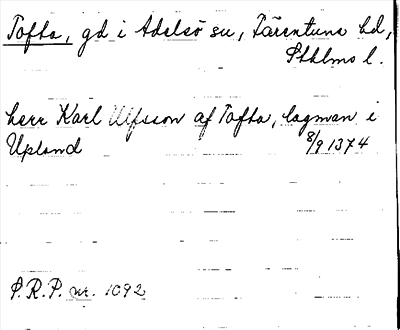 Tofta, gd i Adelsö sn, Färentuna hd,
Sthlms l.
herr Karl Ulfsson af Tofta, lagman i
Upland 8/9 1374
S.R.P. nr. 1092